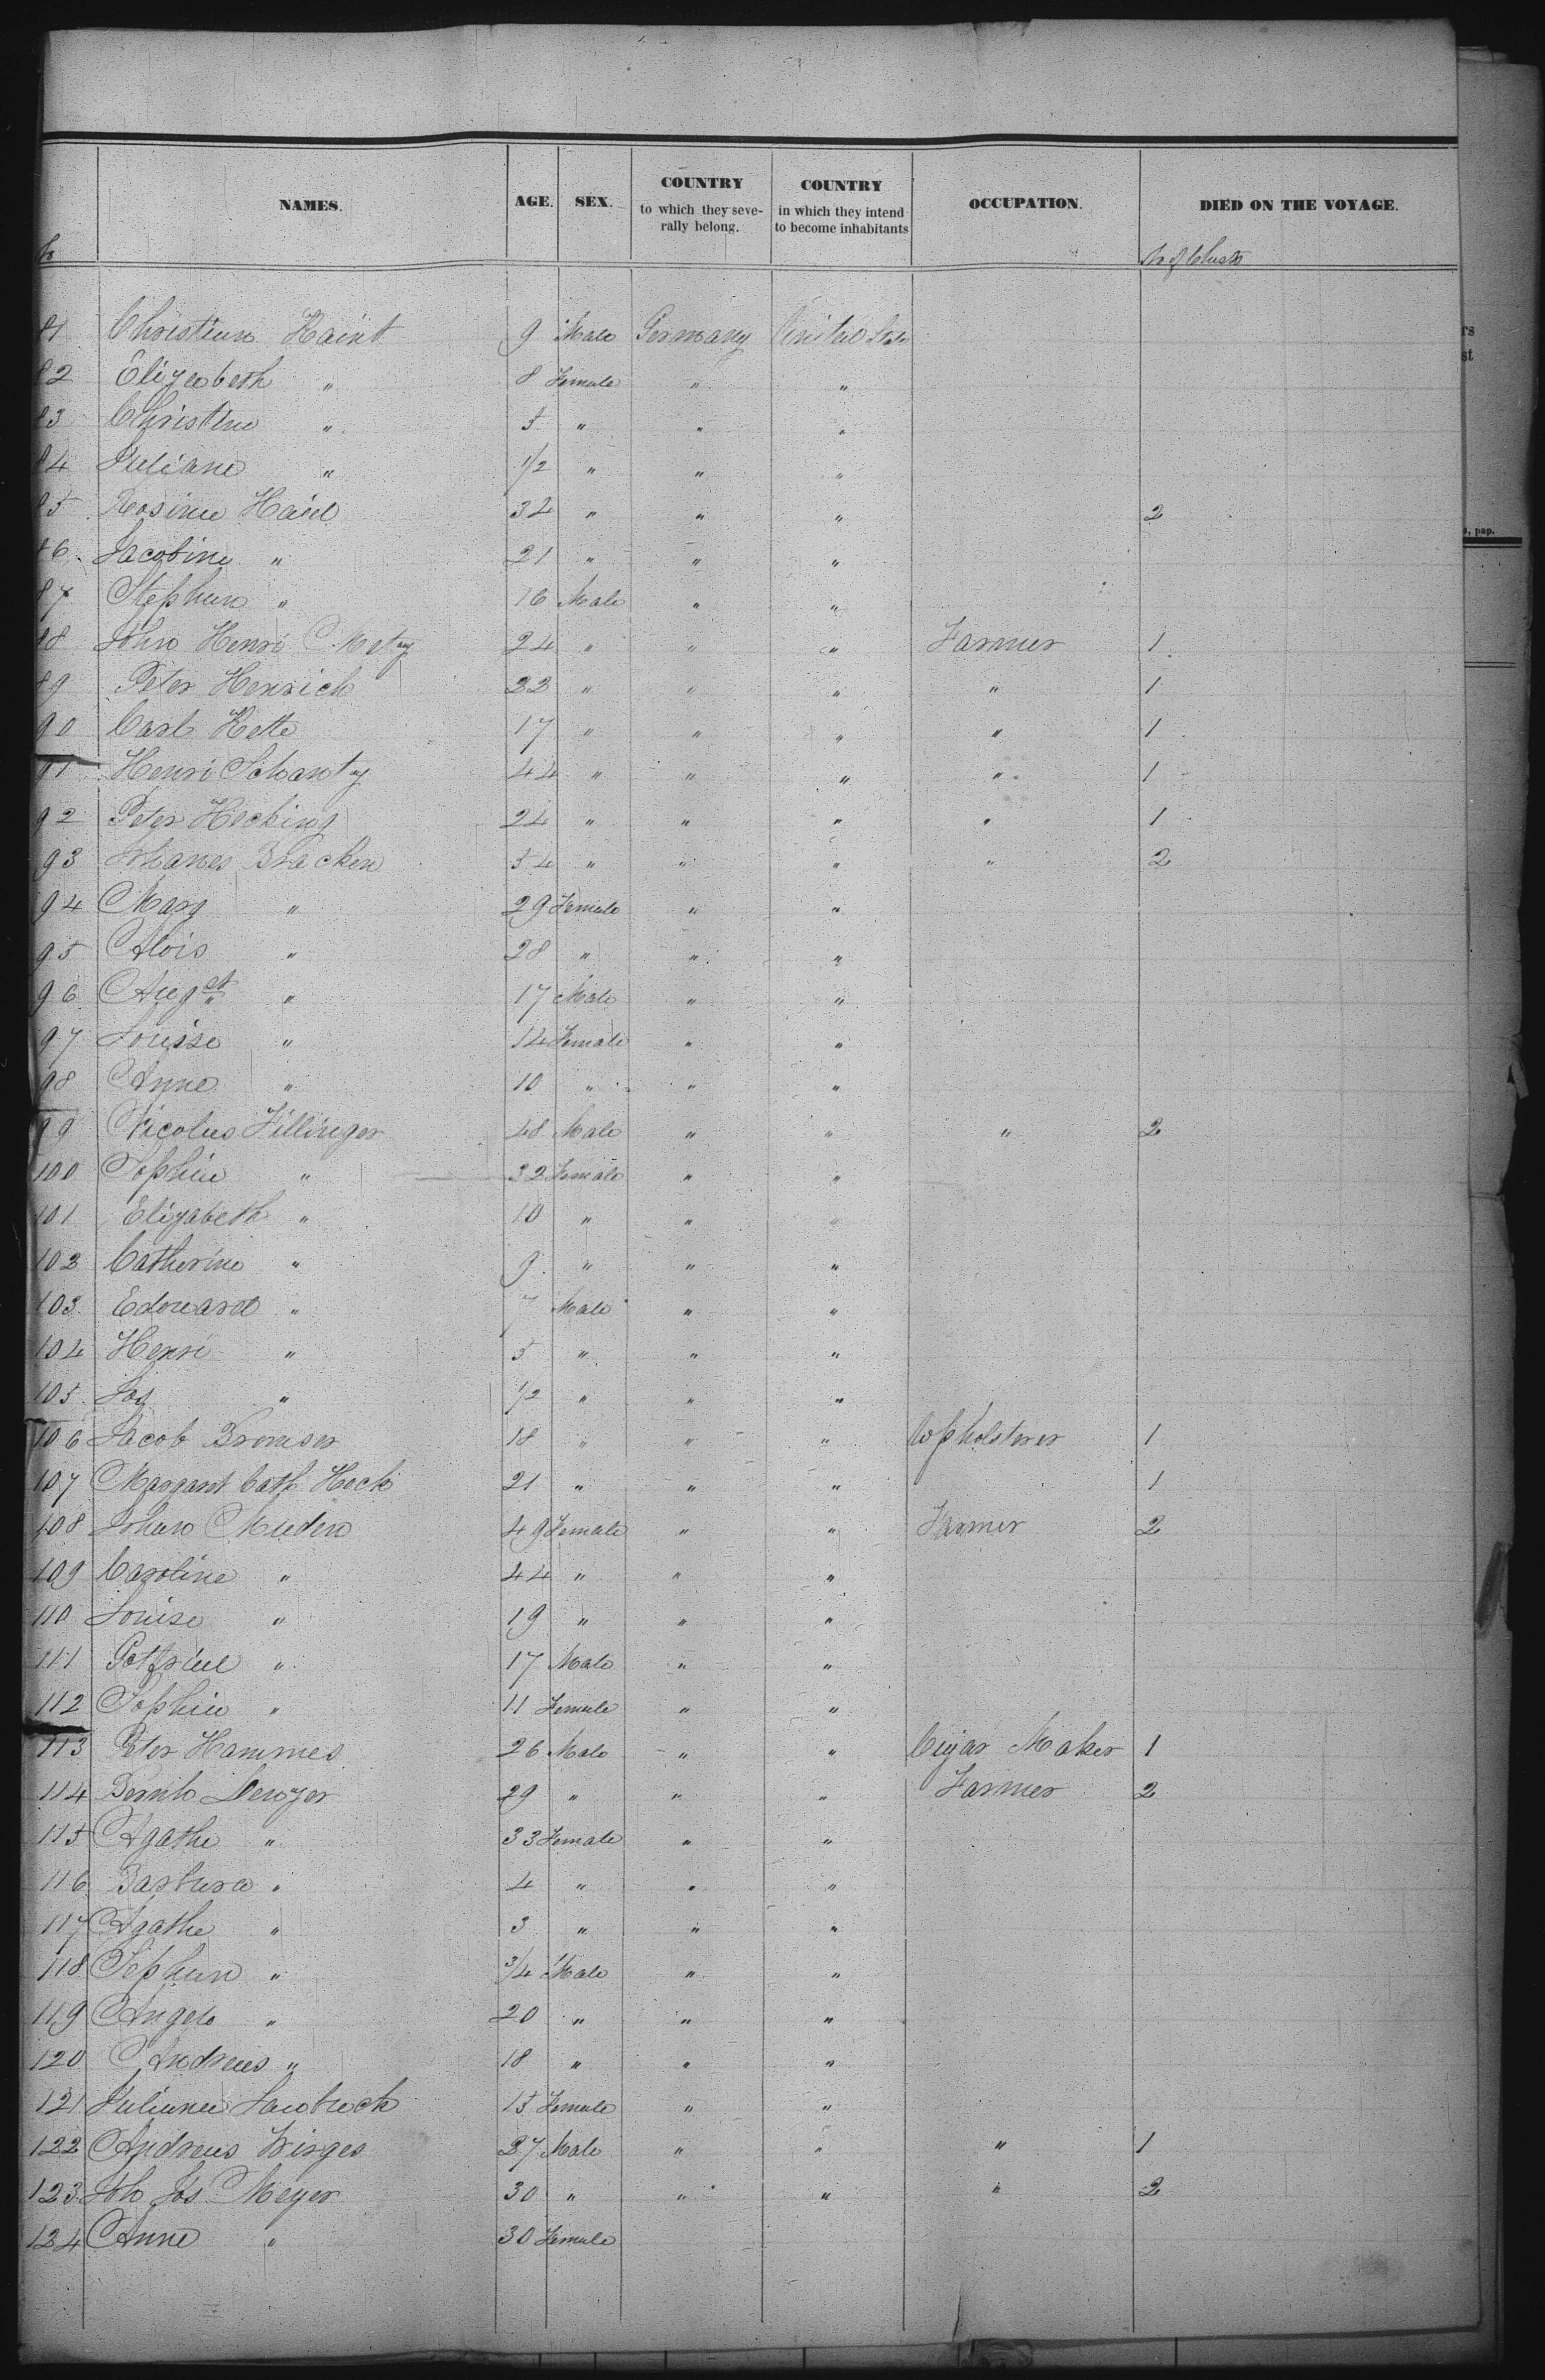 NAMES. AGE. SEX. COUNTRY to which they seve- rally belong. COUNTRY in which they intend to become inhabitants OCCUPATION. DIED ON THE VOYAGE.
No of Chests
81 Christian Haint 9 Male Germany United States
82 Elizabeth " 8 Female " "
83 Christine " 5 " " "
84 Juliane " 1/2 " " "
85 Rosine Haid 32 " " " 2
86 Jacobine " 21 " " "
87 Stephan " 16 Male " "
88 John Henri Metz 24 " " " Farmer 1
89 Peter Henrich 22 " " " " 1
90 Carl Kette 17 " " " " 1
91 Henri Schantz 44 " " " " 1
92 Peter Hecking 24 " " " " 1
93 Johanes Bracken 54 " " " " 2
94 Marg " 29 Female " "
95 Alois " 28 " " "
96 Augst " 17 Male " "
97 Louise " 14 Female " "
98 Anne " 10 " " "
99 Nicolus Fillinger 48 Male " " " 2
100 Sophie " 32 Female " "
101 Elizabeth " 10 " " "
102 Catherine " 9 " " "
103 Edouard " 7 Male " "
104 Henri " 5 " " "
105 Jos " 1/2 " " "
106 Jacob Bromser 18 " " " Upholsterer 1
107 Margaret Cath Hock 21 " " " 1
108 Johan Muden 49 Female " " Farmer 2
109 Caroline " 44 " " "
110 Louise " 19 " " "
111 Gottfried " 17 Male " "
112 Sophie " 11 Female " "
113 Peter Hammes 26 Male " " Cigar Maker 1
114 Bernh 29 " " " Farmer 2
115 Agathe " 33 Female " "
116 Barbara " 4 " " "
117 Agathe " 3 " " "
118 Stephan " 3/4 Male " "
119 Angelo " 20 " " "
120 Andreas " 18 " " "
121 Juliane 15 Female " "
122 Andreas Wirges 27 Male " " " 1
123 Joh Jos Meyer 30 " " " " 2
124 Anne " 30 Female